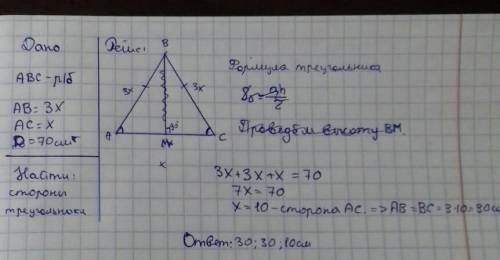 Дано
ABC - р/б
AB = 3x
AC = x
P = 70см
Найти:
стороны
треугольника
Реше:
B
3x
3x
A
M
C
x
Формула треугольника
S = ah/2
Проведём высоту BM.
3x + 3x + x = 70
7x = 70
x = 10 - сторона AC. => AB = BC = 3·10 = 30см
Ответ: 30; 30; 10см